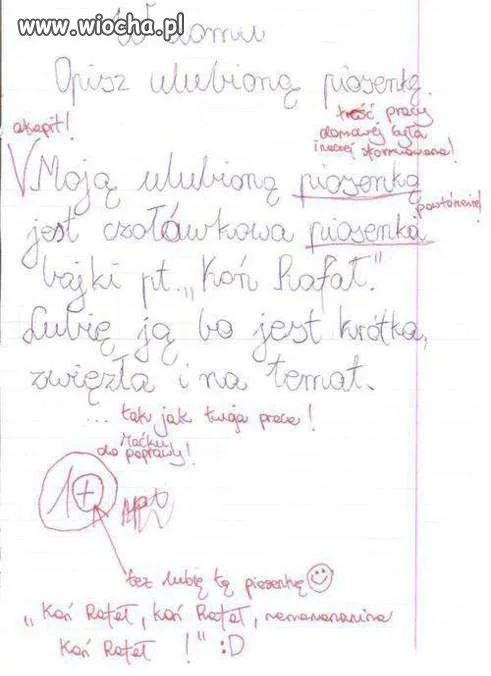 www.wiocha.pl
W domu
Opisz ulubioną piosenkę.
treść pracy
domowej była
inaczej sformułowana!
akapit!
V Moją ulubioną piosenką
powtórzenie!
jest czołówkowa piosenka
bajki pt. „Koń Rafał."
Lubię ją bo jest krótka,
zwięzła i na temat.
... tak jak twoja praca!
Maćku
do poprawy!
1+
też lubię tę piosenkę
„Koń Rafał, koń Rafał, nananananana
Koń Rafał !" :D